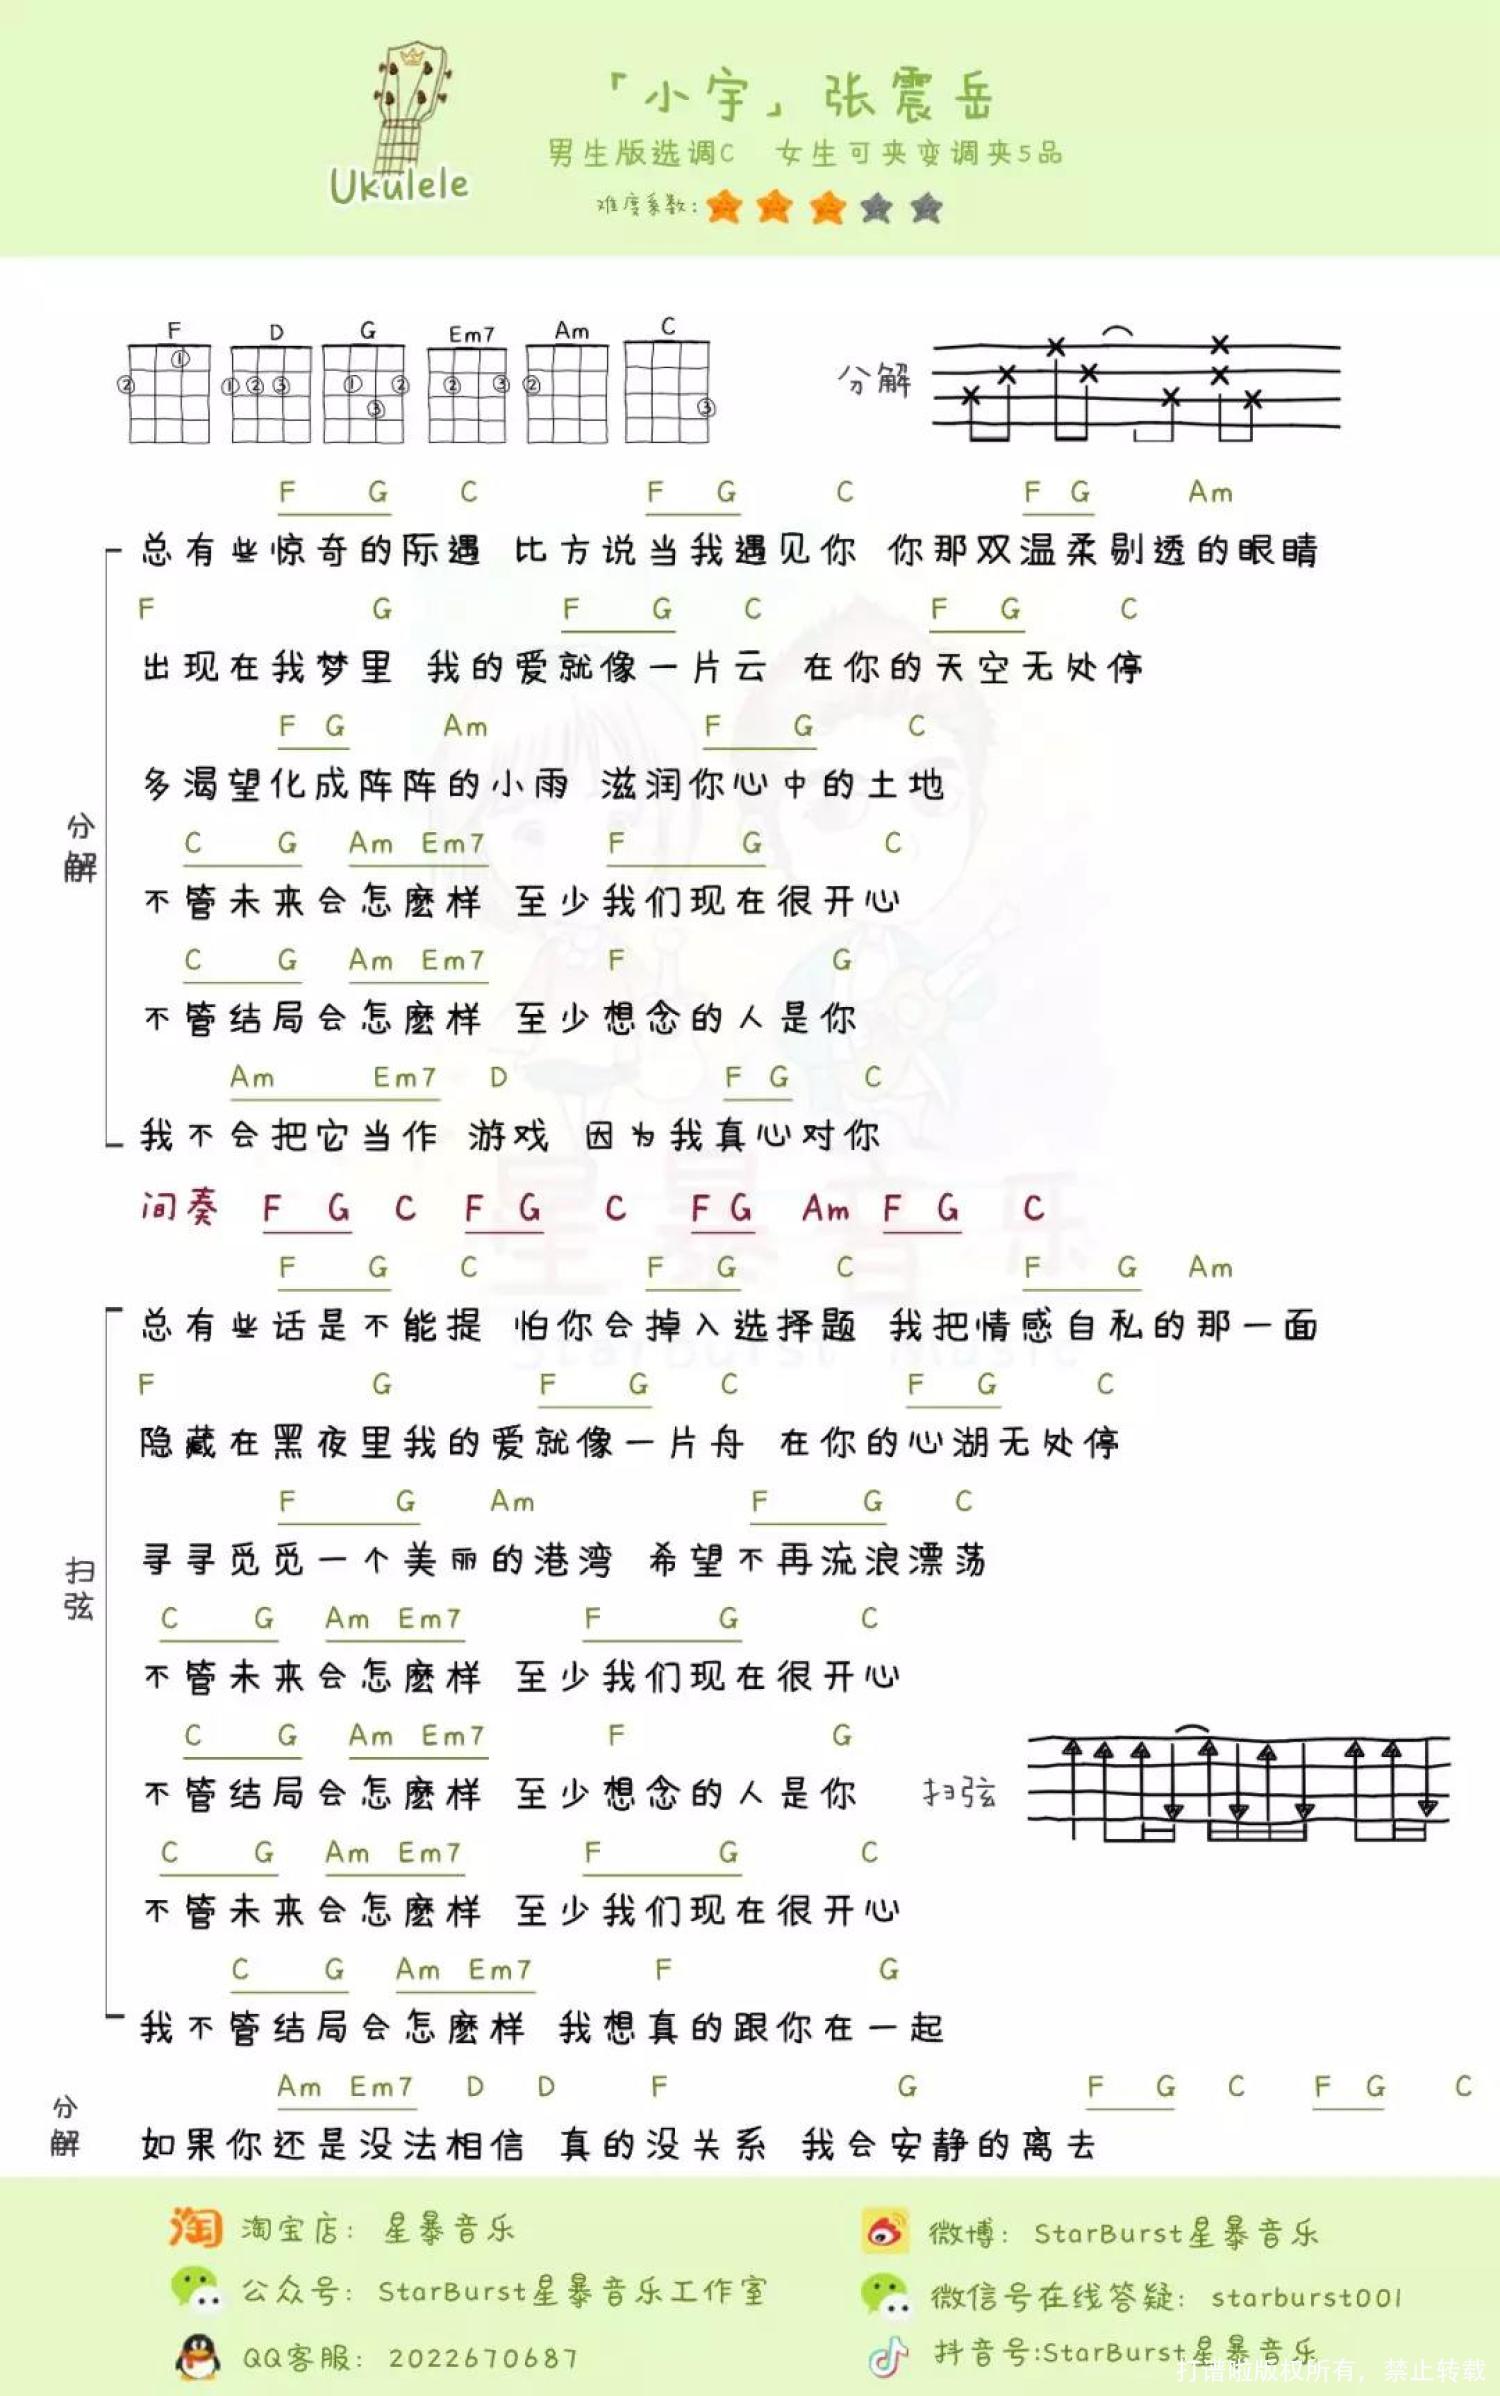 「小宇」张震岳
Ukulele
男生版选调C 女生可夹变调夹5品
难度系数:
F D G Em7 Am C
分解
F G C F G C F G Am
总有些惊奇的际遇 比方说当我遇见你 你那双温柔剔透的眼睛
F G F G C F G C
出现在我梦里 我的爱就像一片云 在你的天空无处停
F G Am F G C
多渴望化成阵阵的小雨 滋润你心中的土地
分解
C G Am Em7 F G C
不管未来会怎麽样 至少我们现在很开心
C G Am Em7 F G
不管结局会怎麽样 至少想念的人是你
Am Em7 D F G C
我不会把它当作 游戏 因为我真心对你
间奏 F G C F G C F G Am F G C
F G C F G C F G Am
总有些话是不能提 怕你会掉入选择题 我把情感自私的那一面
F G F G C F G C
隐藏在黑夜里我的爱就像一片舟 在你的心湖无处停
F G Am F G C
寻寻觅觅一个美丽的港湾 希望不再流浪漂荡
扫弦
C G Am Em7 F G C
不管未来会怎麽样 至少我们现在很开心
C G Am Em7 F G
不管结局会怎麽样 至少想念的人是你
扫弦
C G Am Em7 F G C
不管未来会怎麽样 至少我们现在很开心
C G Am Em7 F G
我不管结局会怎麽样 我想真的跟你在一起
分解
Am Em7 D D F G F G C F G C
如果你还是没法相信 真的没关系 我会安静的离去
星暴音乐
StarBurst Music
淘 淘宝店: 星暴音乐
微博: StarBurst星暴音乐
公众号: StarBurst星暴音乐工作室
微信号在线答疑: starburst001
QQ客服: 2022670687
抖音号:StarBurst星暴音乐
打谱啦版权所有，禁止转载